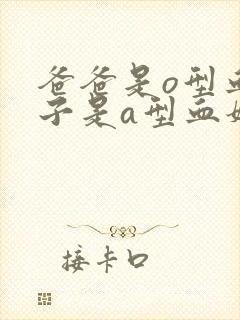 爸爸是o型血
子是a型血如
接卡口